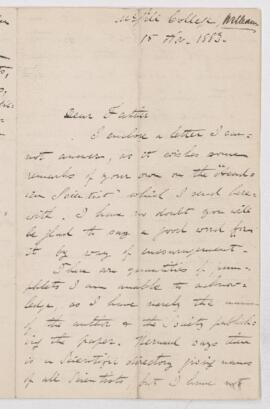 McGill College William
15 Nov. 1883.
Dear Father
I enclose a letter I can-
not answer, as it wishes some
remarks of your own on the
Scientist" which I send here-
with. I have no doubt you will
be glad to say a good word for
it by way of encouragement.
There are quantities of pam-
phlets I am unable to acknow-
ledge, as I have merely the name
of the author & the Society publish-
ing the paper. says there
is a Scientific directory giving names
of all Scientists, but I have not